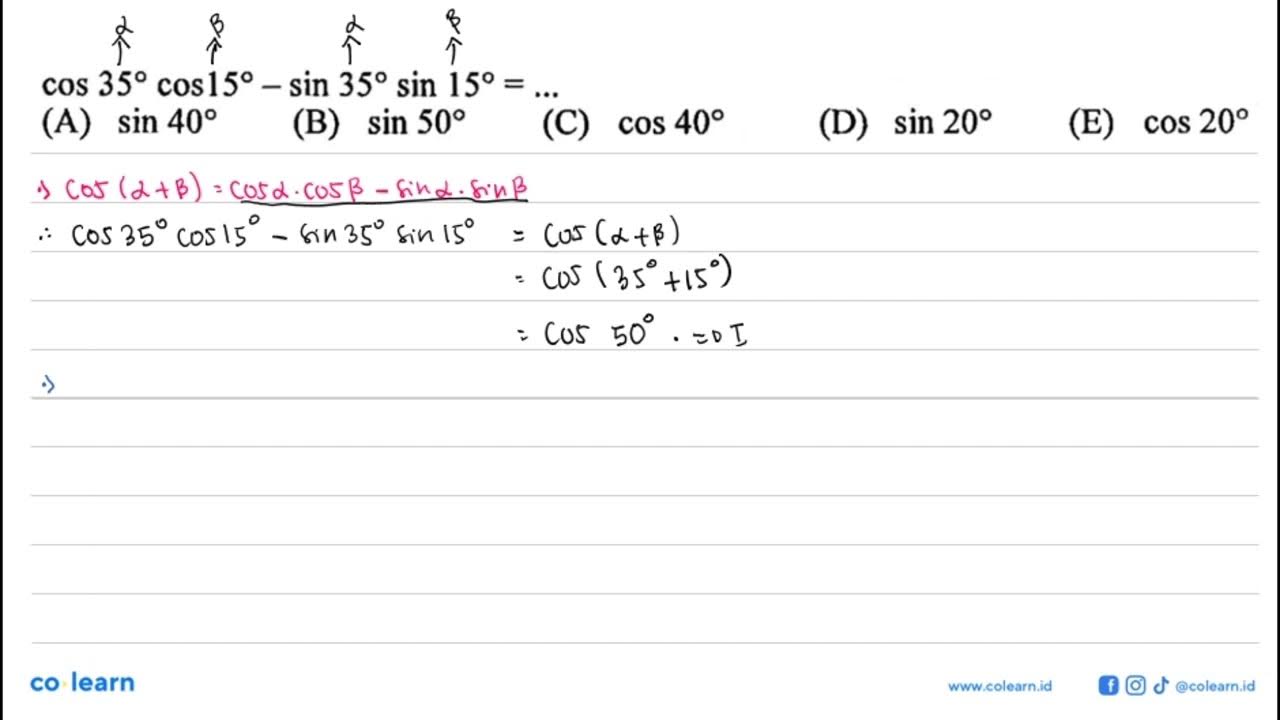 α β α β
cos 35° cos15° – sin 35° sin 15° = ...
(A) sin 40° (B) sin 50° (C) cos 40° (D) sin 20° (E) cos 20°
cos (α + β) = cosα . cosβ – sinα . sinβ
∴ cos 35° cos 15° – sin 35° sin 15° = cos (α + β)
= cos (35° + 15°)
= cos 50° . => I
co learn
www.colearn.id @colearn.id